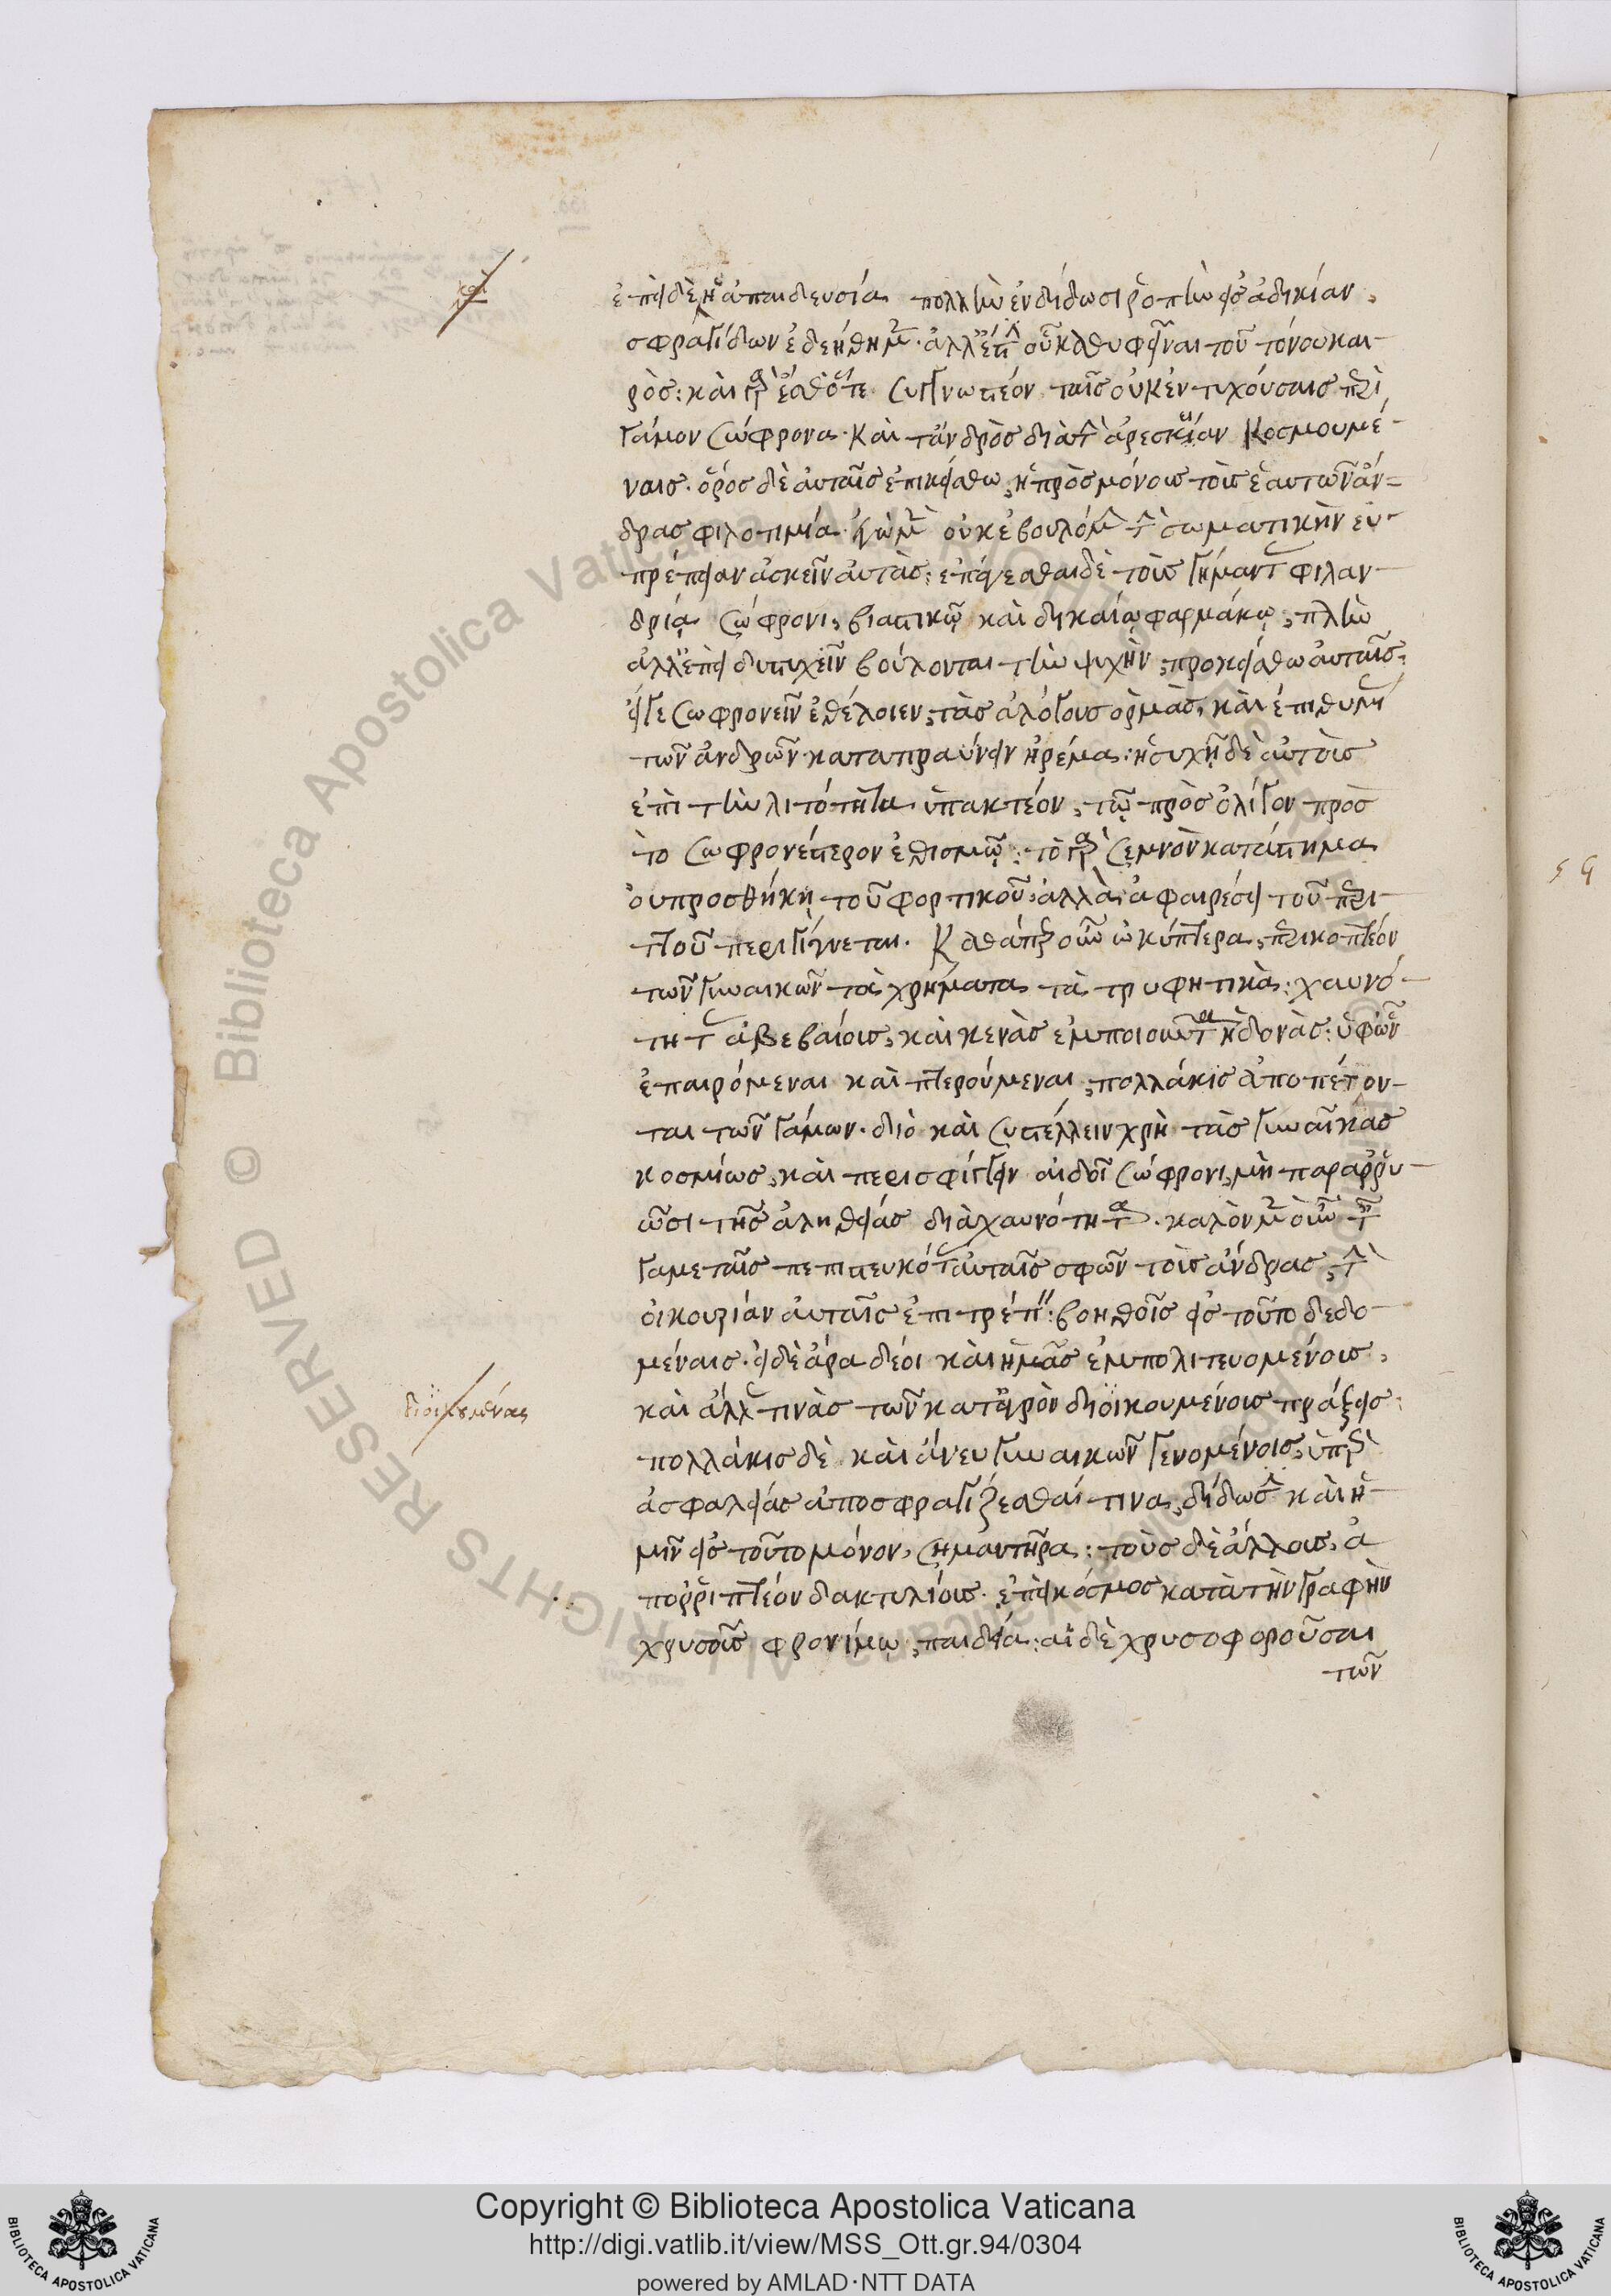 καὶ
ἐπεὶ δὲ ἡ ἀπαιδευσία πολλὴν ἐνδίδωσι ῥοπὴν εἰς ἀδικίαν,
σφραγίδων ἐδεήθημεν. ἀλλ' ἔστιν οὗ καθυφεῖναι τοῦ τόνου και-
ρὸς: καὶ γὰρ ἔσθ' ὅτε συγγνωστέον ταῖς οὐκ ἐντυχούσαις περὶ
γάμον σώφρονα. καὶ τἀνδρὸς διὰ τὴν ἀρεσκείαν κοσμουμέ-
ναις. ὅρος δὲ αὐταῖς ἐπικείσθω, ἡ πρὸς μόνους τοὺς ἑαυτῶν ἄν-
δρας φιλοτιμία. ἐγὼ μὲν οὐκ ἐβουλόμην τὴν σωματικὴν εὐ-
πρέπειαν ἀσκεῖν αὐτὰς: ἐπάγεσθαι δὲ τοὺς γήμαντας φιλαν-
δρίᾳ σώφρονι, βιαστικῷ καὶ δικαίῳ φαρμάκῳ, πλὴν
ἀλλ' ἐπεὶ δυστυχεῖν βούλονται τὴν ψυχὴν, προκείσθω αὐταῖς,
εἴ γε σωφρονεῖν ἐθέλοιεν, τὰς ἀλόγους ὁρμὰς, καὶ ἐπιθυμίας
τῶν ἀνδρῶν καταπραΰνειν ἠρέμα: ἡσυχῇ δὲ αὐτοὺς
ἐπὶ τὴν λιτότητα ὑπακτέον, τῷ πρὸς ὀλίγον πρὸς
τὸ σωφρονέστερον ἐθισμῷ: τὸ γὰρ σεμνὸν κατάστημα
οὐ προσθήκῃ τοῦ φορτικοῦ, ἀλλὰ ἀφαιρέσει τοῦ περι-
ττοῦ περιγίνεται. Καθάπερ οὖν ὠκύπτερα, περικοπτέον
τῶν γυναικῶν τὰ χρήματα τὰ τρυφητικὰ: χαυνό-
τητας ἀβεβαίους, καὶ κενὰς ἐμποιοῦντα ἡδονὰς: ὑφ' ὧν
ἐπαιρόμεναι καὶ πτερούμεναι, πολλάκις ἀποπέτον-
ται τῶν γάμων. διὸ καὶ συστέλλειν χρὴ τὰς γυναῖκας
κοσμίως, καὶ περισφίγγειν αἰδοῖ σώφρονι, μὴ παραρρυ-
ῶσι τῆς ἀληθείας διὰ χαυνότητα. καλὸν μὲν οὖν ταῖς
γαμεταῖς πεπιστευκότας αὐταῖς σφῶν τοὺς ἄνδρας, τὴν
οἰκουρίαν αὐταῖς ἐπιτρέπειν: βοηθοῖς εἰς τοῦτο δεδο-
μέναις. εἰ δὲ ἄρα δέοι καὶ ἡμᾶς ἐμπολιτευομένους,
διοικουμένας
καὶ ἄλλας τινὰς τῶν κατ' ἀγρὸν διοικουμένους πράξεις:
πολλάκις δὲ καὶ ἄνευ γυναικῶν γενομένους, ὑπὲρ
ἀσφαλείας ἀποσφραγίζεσθαί τινα, δίδωσι καὶ ἡ-
μῖν εἰς τοῦτο μόνον, σημαντῆρα: τοὺς δὲ ἄλλους, ἀ
πορριπτέον δακτυλίους. ἐπεὶ κόσμος κατὰ τὴν γραφὴν
χρυσοῦς φρονίμῳ, παιδεία: αἱ δὲ χρυσοφοροῦσαι
τῶν
Biblioteca Apostolica Vaticana ALL RIGHTS RESERVED ©
Copyright © Biblioteca Apostolica Vaticana
http://digi.vatlib.it/view/MSS_Ott.gr.94/0304
powered by AMLAD·NTT DATA
BIBLIOTECA APOSTOLICA VATICANA
BIBLIOTECA APOSTOLICA VATICANA